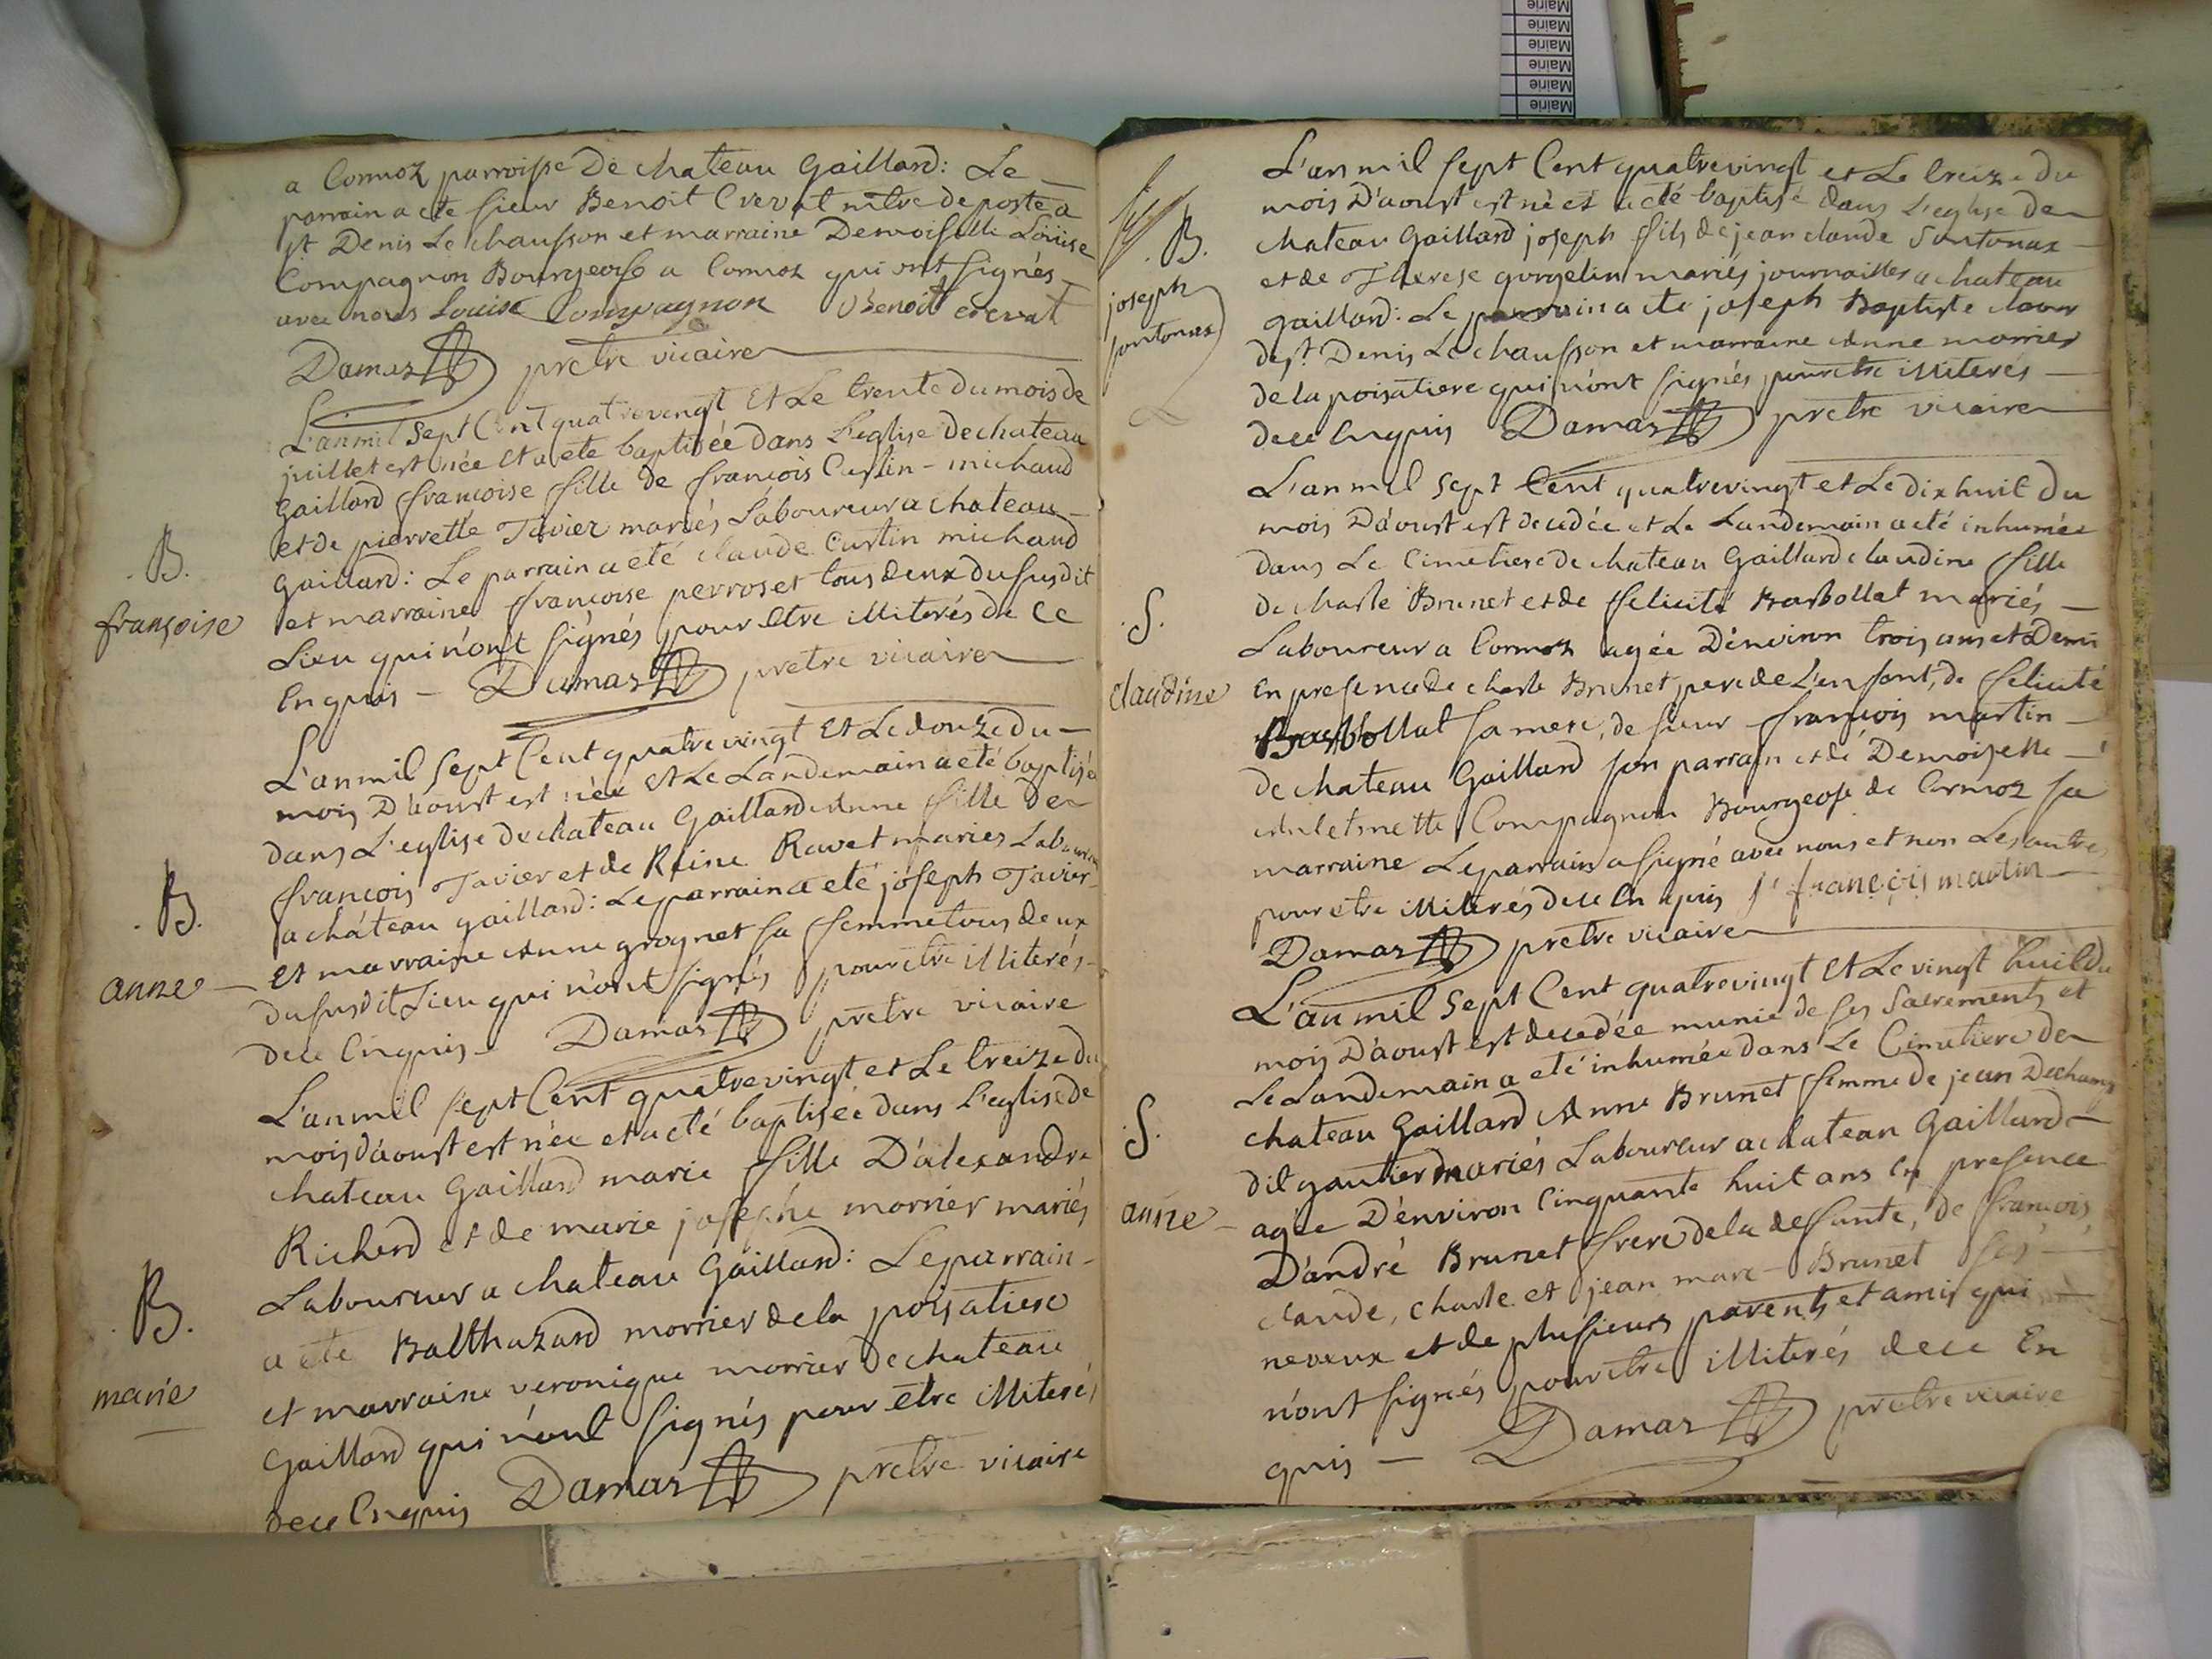 Mairie
Mairie
Mairie
Mairie
Mairie
Mairie
a Cormoz parroisse De chateau Gaillard: Le
parrain a ete sieur Benoit Crevat mtre de poste a
st Denis Le chausson et marraine Demoiselle Loüise
Compagnon Bourgeoise a Cormoz qui ont signés
avec nous Louise Compagnon Benoit crevat
Damaz pretre vicaire
L'an mil sept Cent quatrevingt Et Le trente du mois de
juillet est née Et a ete baptisée dans L'eglise de chateau
Gaillard françoise fille de françois Curlin-michaud
et de pierrette Tavier mariés Laboureur a chateau
Gaillard: Le parrain a eté claude Curlin michaud
et marraine françoise perroset tous deux du susdit
Lieu qui n'ont signés pour Etre illiterés de ce
Enquis - Damaz pretre vicaire
B.
françoise
L'an mil sept Cent quatrevingt Et Le douze du
mois D'aoust est née Et Le Landemain a eté baptisé
dans L'eglise de chateau Gaillard Anne fille de
françois Tavier et de Reine Ravet mariés Laboureur
a château gaillard: Le parrain a eté joseph Tavier
Et marraine Anne grognet sa femme tous deux
du susdit Lieu qui n'ont signés pour etre illiterés
de ce Enquis - Damaz pretre vicaire
B.
anne
L'an mil sept Cent quatrevingt et Le treize du
mois d'aoust est née et a eté baptisée dans L'eglise de
chateau Gaillard marie fille D'alexandre
Richerd et de marie josephe morrier mariés
Laboureur a chateau Gaillard: Le parrain
a ete Balthazard morrier de la poisatiere
et marraine veronique morrier de chateau
Gaillard qui n'ont signés pour etre illiterés
de ce Enquis Damaz pretre vicaire
B.
marie
L'an mil sept Cent quatrevingt et Le treize du
mois D'aoust est né et a eté baptisé dans L'eglise de
chateau Gaillard joseph fils de jean claude Sontonax
et de Therese gorgelin mariés journaillier a chateau
gaillard: Le parrain a ete joseph Baptiste
de st. Denis Le chausson et marraine Anne morrier
de la poisatiere qui n'ont signés pour etre illiterés
de ce Enquis Damaz pretre vicaire
B.
joseph
sontonax
L'an mil sept Cent quatrevingt et Le dix huit du
mois D'aoust est decedée et Le Landemain a eté inhumée
dans Le Cimetiere de chateau Gaillard claudine fille
de charle Brunet et de felicité Barbollat mariés
Laboureur a Cormoz agée D'environ trois ans et Demi
en presence de charle Brunet pere de L'enfant, de felicité
Barbollat sa mere, de sieur françois martin
de chateau Gaillard son parrain et de Demoiselle
Compagnon Bourgeoise de Cormoz sa
marraine Le parrain a signé avec nous et non Les autres
pour etre illiterés de ce Enquis françois martin
Damaz pretre vicaire
S.
claudine
L'an mil sept Cent quatrevingt Et Le vingt huit du
mois D'aoust est decedée munie de ses Sacrements et
Le Landemain a eté inhumée dans Le Cimetiere de
chateau Gaillard Anne Brunet femme de jean Dechamp
dit gautier mariés Laboureur a chateau Gaillard
agée D'environ Cinquante huit ans En presence
D'andré Brunet frere de la deffunte, de françois
claude, charle et jean marc Brunet ses
neveux et de plusieurs parents et amis qui
n'ont signés pour etre illiterés de ce En
quis - Damaz pretre vicaire
S.
anne